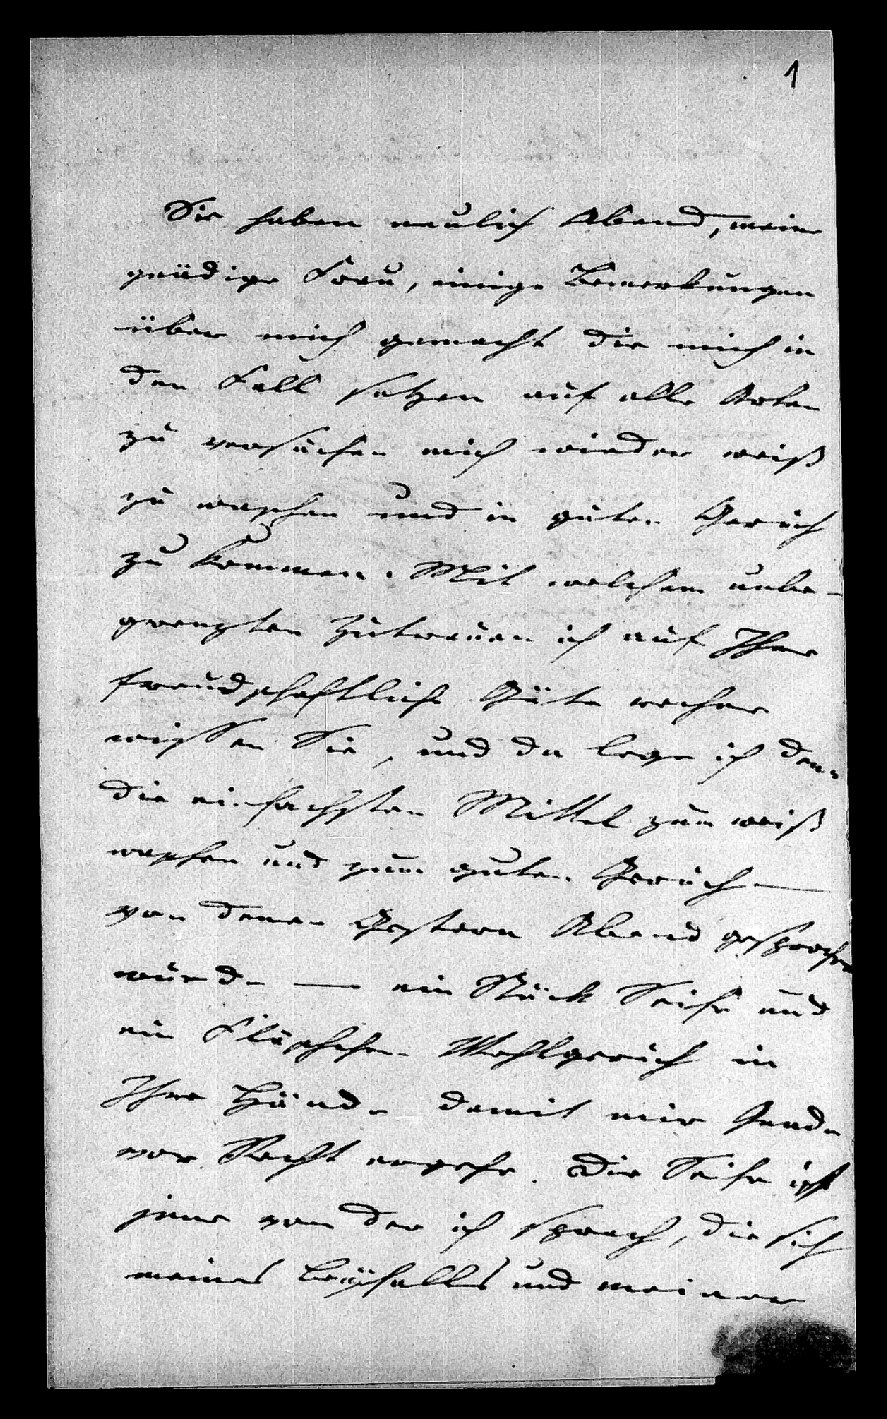 1
Sie haben neulich Abend, meine
gnädige Frau, einige Bemerkungen
über mich gemacht die mich in
den Fall setzen auf alle Arten
zu versuchen mich wieder weiß
zu waschen und in guten Geruch
zu kommen. Mit welchem unbe-
grenzten Zutrauen ich auf Ihre
freundschaftliche Güte rechne
wissen Sie, und da lege ich denn
die einfachsten Mittel zum weiß
waschen und zum guten Geruch —
von denen Gestern Abend gesprochen
wurde — ein Stück Seife und
ein Fläschchen Wohlgeruch in
Ihre Hände damit mir Gnade
vor Recht ergehe. Die Seife ist
jene von der ich sprach, die sich
meines Beyfalls und meiner